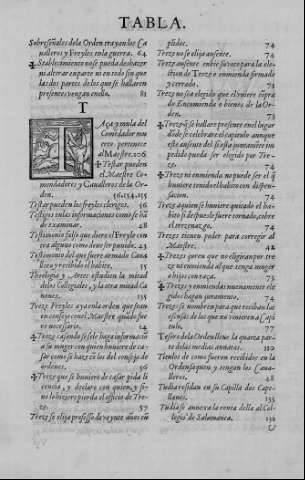 TABLA.
Sobreseñales de la Orden trayan los Ca
ualleros y Freyles en la guerra. 64
Establecimiento no se pueda deshazer
ni alterar en parte ni en todo sin que
las dos partes de los que se hallaren
presentes vengan en ello. 81
T
Taça y mula del
Comẽdador mu
erto pertenece
al Maestre. 106
Testar pueden
el Maestre Co
mendadores y Caualleros de la Or-
den. 56.154.155
Testar pueden los freyles clerigos. 56
Testigos en las informaciones como se hã
de examinar. 28
Testimonio falso que diere el Freyle con
tra alguno como deue ser punido. 23
Testimonio del que fuere armado Caua
llero y recibido el habito. 55
Theologia y Artes estudien la mitad
de los Collegiales, y la otra mitad Ca
nones. 135
Treze Freyles aya en la orden que sean
en consejo con el Maestre quãdo fue
re necessario.
Treze cayendo se sele haga informaciõ
a su muger con quien huuiere de ca-
sar como se haze en los del consejo de
ordenes. 56
Treze que se huuiere de casar pida li
cencia, y declare con quien, y si no
lo hiziere pierda el officio de Tre-
ze. 57
Treze se elija professo de veynte años cũ
plidos. 74
Treze no se elija ausente. 74
Treze ausente embie su voto para la ele-
ction de Treze o enmienda firmado
y cerrado. 73
Treze no sea elegido que el tuuiere cõpra
de Encomienda o bienes de la Or-
den. 73
Trezes q̃ se hallare presente en el lugar
dõde se celebrare el capitulo aunque
este ausente del si esta justamẽte im
pedido pueda ser elegido por Tre-
ze. 74
Treze ni enmienda no puede ser el q̃
huuiere tenido el habito con dispen-
sacion. 74
Treze a quien se huuiere quitado el ha-
bito si despues le fuere tornado, cobre
el trezenazgo. 74
Trezes tienen poder para corregir al
Maestre. 42
Trezes juren que no eligiran por tre-
ze ni enmienda al que tenga muger
o hija con raça. 73
Trezes y enmiendas nueuamente ele
gidos hagan juramento. 74
Trezes se nombren para que reciban las
escusas de los que no vinieren a Capi
tulo. 77
Tesoro de la Orden lleue la quarta par
te de las medias annatas. 130
Titulos de como fueron recibidos en la
Orden saquen y tengan los Caua-
lleros. 48
Tudia residan en su Capilla dos Cape-
llanes. 133
Tudia se annexa la renta della al Col-
legio de Salamanca. 132